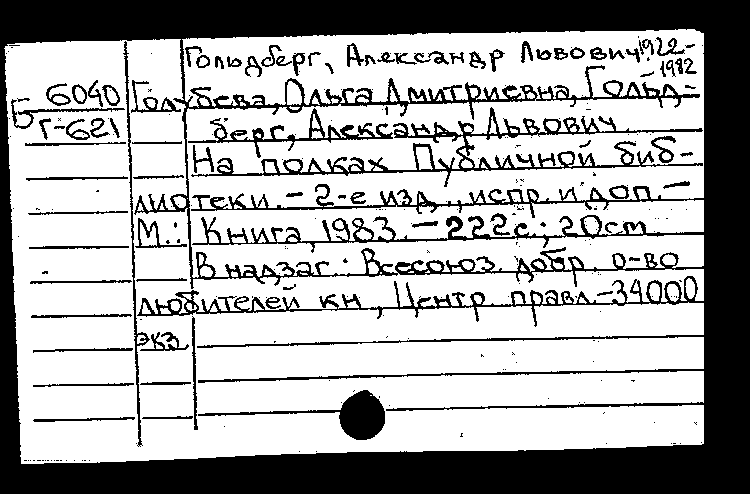 Гольдберг, Александр Львович 1922-
1982
Б 6040 Голубева, Ольга Дмитриевна, Гольд-
Г-621 берг, Александр Львович
На полках Публичной биб-
лиотеки. – 2-е изд., испр. и доп. –
М.: Книга, 1983. – 222с.; 20см
В надзаг.: Всесоюз. добр. о-во
любителей кн., Центр. правл. – 34000
экз.